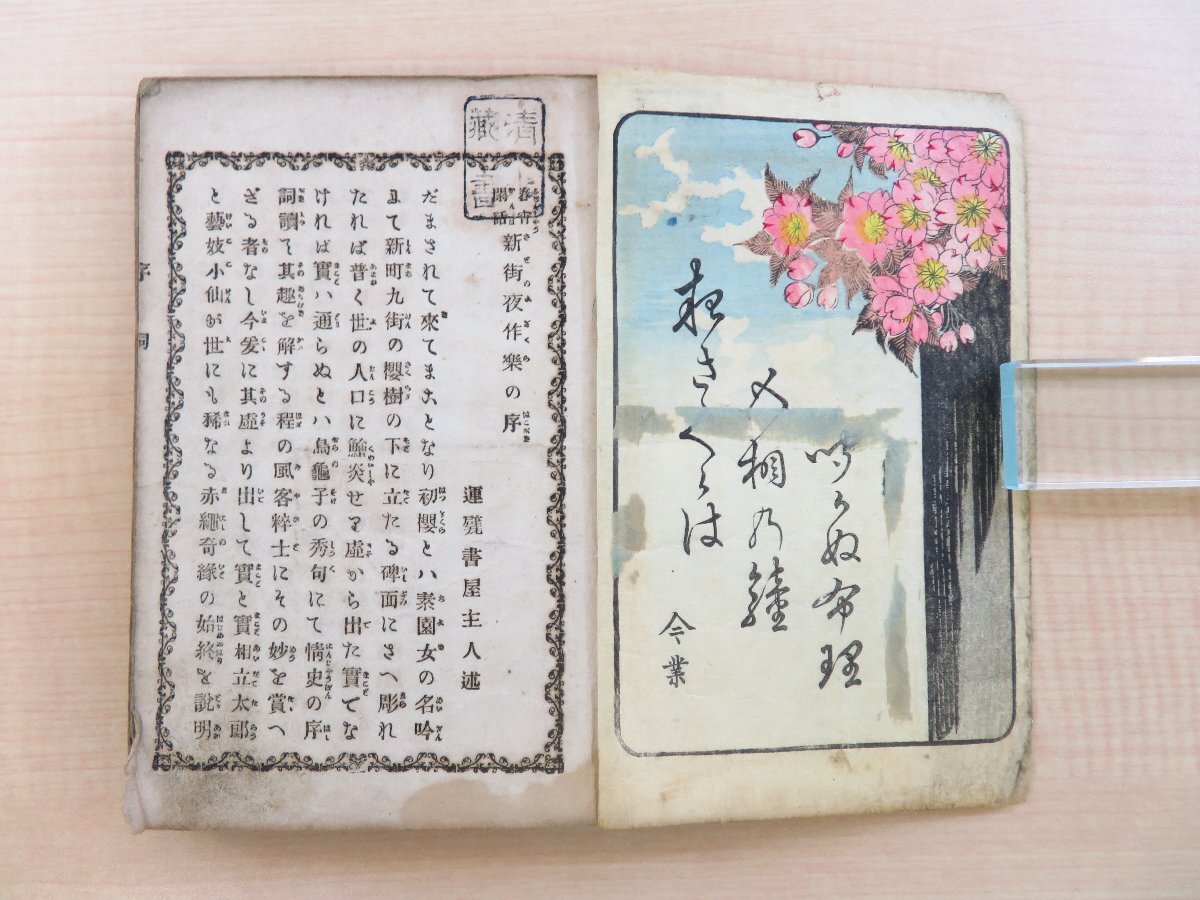 吹かぬ布理
又相乃鐘
夜さくらは
今業
清
藏
書
春宵
閑話
新街夜作樂の序
運甓書屋主人述
だまされて來てまことなり初櫻とハ素園女の名吟
まて新町九街の櫻樹の下に立たる碑面にさへ彫れ
たれば普く世の人口に鱠炙せり虛から出た實でな
ければ實ハ通らぬとハ烏龜子の秀句にて情史の序
詞讀て其趣を解する程の風客粹士にその妙を賞へ
ざる者なし今爰に其虛より出して實と實相立太郎
と藝妓小仙が世にも稀なる赤繩奇緣の始終を說明
序詞